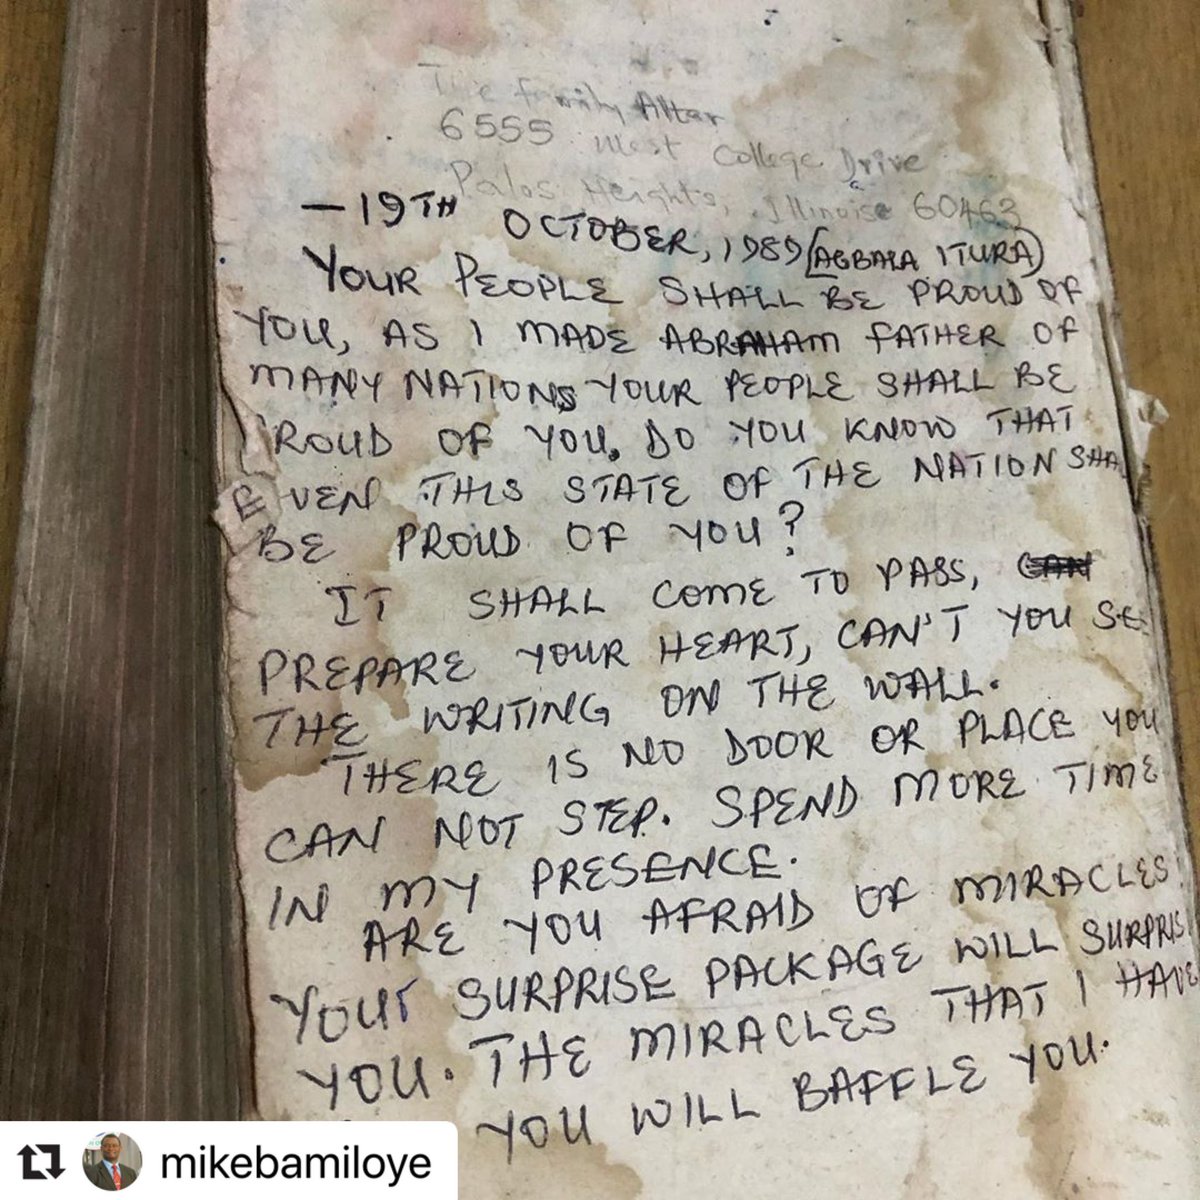 The Family Altar
6555 West College Drive
Palos Heights, Illinoise 60463
— 19TH OCTOBER, 1989 (AGBALA ITURA)
YOUR PEOPLE SHALL BE PROUD OF
YOU, AS I MADE ABRAHAM FATHER OF
MANY NATIONS YOUR PEOPLE SHALL BE
ROUD OF YOU. DO YOU KNOW THAT
EVEN THIS STATE OF THE NATION SHA
BE PROUD OF YOU?
IT SHALL COME TO PASS,
PREPARE YOUR HEART, CAN'T YOU SE
THE WRITING ON THE WALL.
THERE IS NO DOOR OR PLACE YOU
CAN NOT STEP. SPEND MORE TIME
IN MY PRESENCE.
ARE YOU AFRAID OF MIRACLES
YOUR SURPRISE PACKAGE WILL SURPRIS
YOU. THE MIRACLES THAT I HAVE
YOU WILL BAFFLE YOU.
mikebamiloye